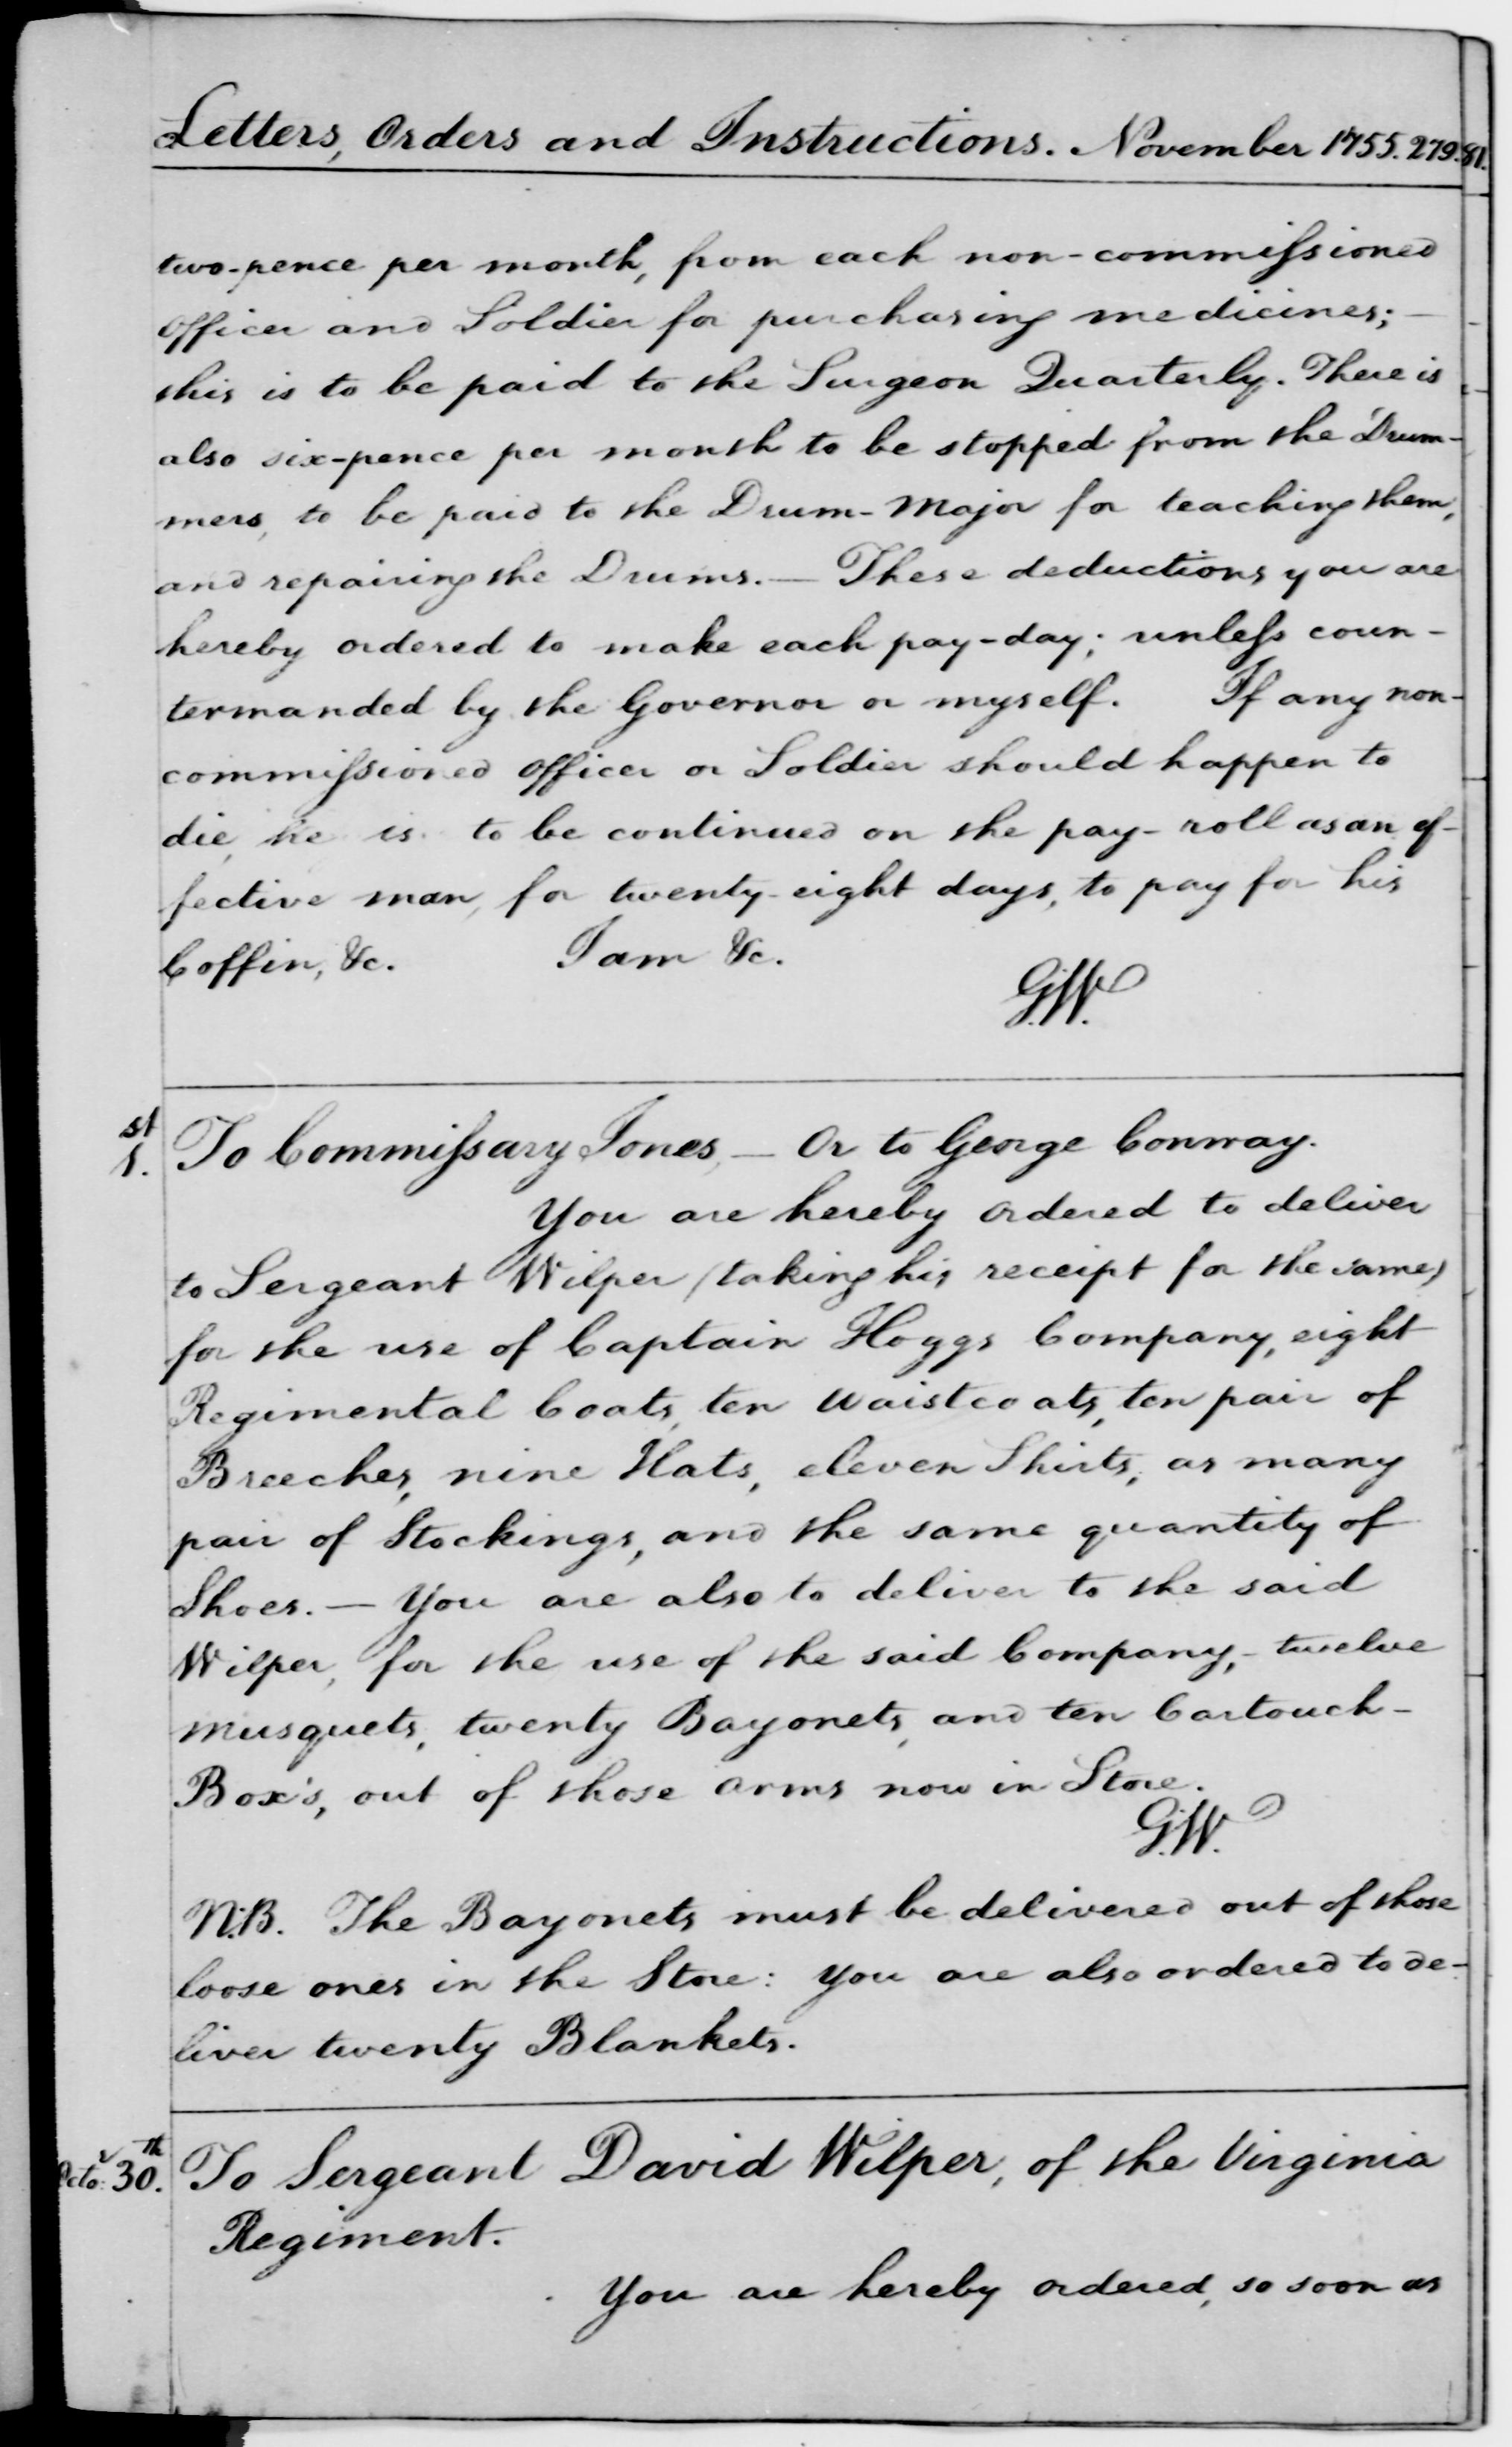 Letters, Orders and Instructions. November 1755. 279.
two-pence per month, from each non-commissioned
Officer and Soldier for purchasing medicines;—
this is to be paid to the Surgeon Quarterly. There is
also six-pence per month to be stopped from the Drum-
mers, to be paid to the Drum-Major for teaching them,
and repairing the Drums.— These deductions you are
hereby ordered to make each pay-day; unless coun-
termanded by the Governor or myself. If any non-
commissioned Officer or Soldier should happen to
die, he is to be continued on the pay-roll as an ef-
fective man, for twenty-eight days, to pay for his
Coffin, &c. I am &c.
G:W.
1st. To Commissary Jones,— Or to George Conway.
You are hereby ordered to deliver
to Sergeant Wilper (taking his receipt for the same)
for the use of Captain Hoggs Company, eight
Regimental Coats, ten Waistcoats, ten pair of
Breeches, nine Hats, eleven Shirts, as many
pair of Stockings, and the same quantity of
Shoes.— You are also to deliver to the said
Wilper, for the use of the said Company,- twelve
musquets, twenty Bayonets, and ten Cartouch-
Box's, out of those arms now in Store.
G:W.
N:B. The Bayonets must be delivered out of those
loose ones in the Store: You are also ordered to de-
liver twenty Blankets.
Octo. 30th. To Sergeant David Wilper, of the Virginia
Regiment.
You are hereby ordered, so soon as